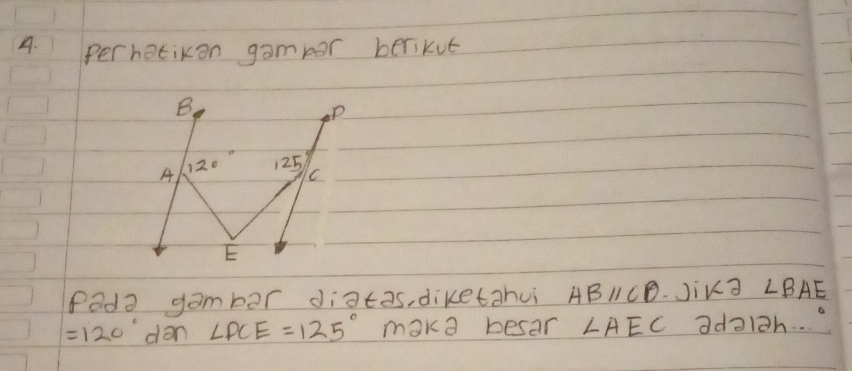 4. Perhatikan gambar berikut
B D
A 120° 125 C
E
Pada gambar diatas, diketahui AB // CD. Jika ∠BAE
= 120° dan ∠DCE = 125° maka besar ∠AEC adalah...°